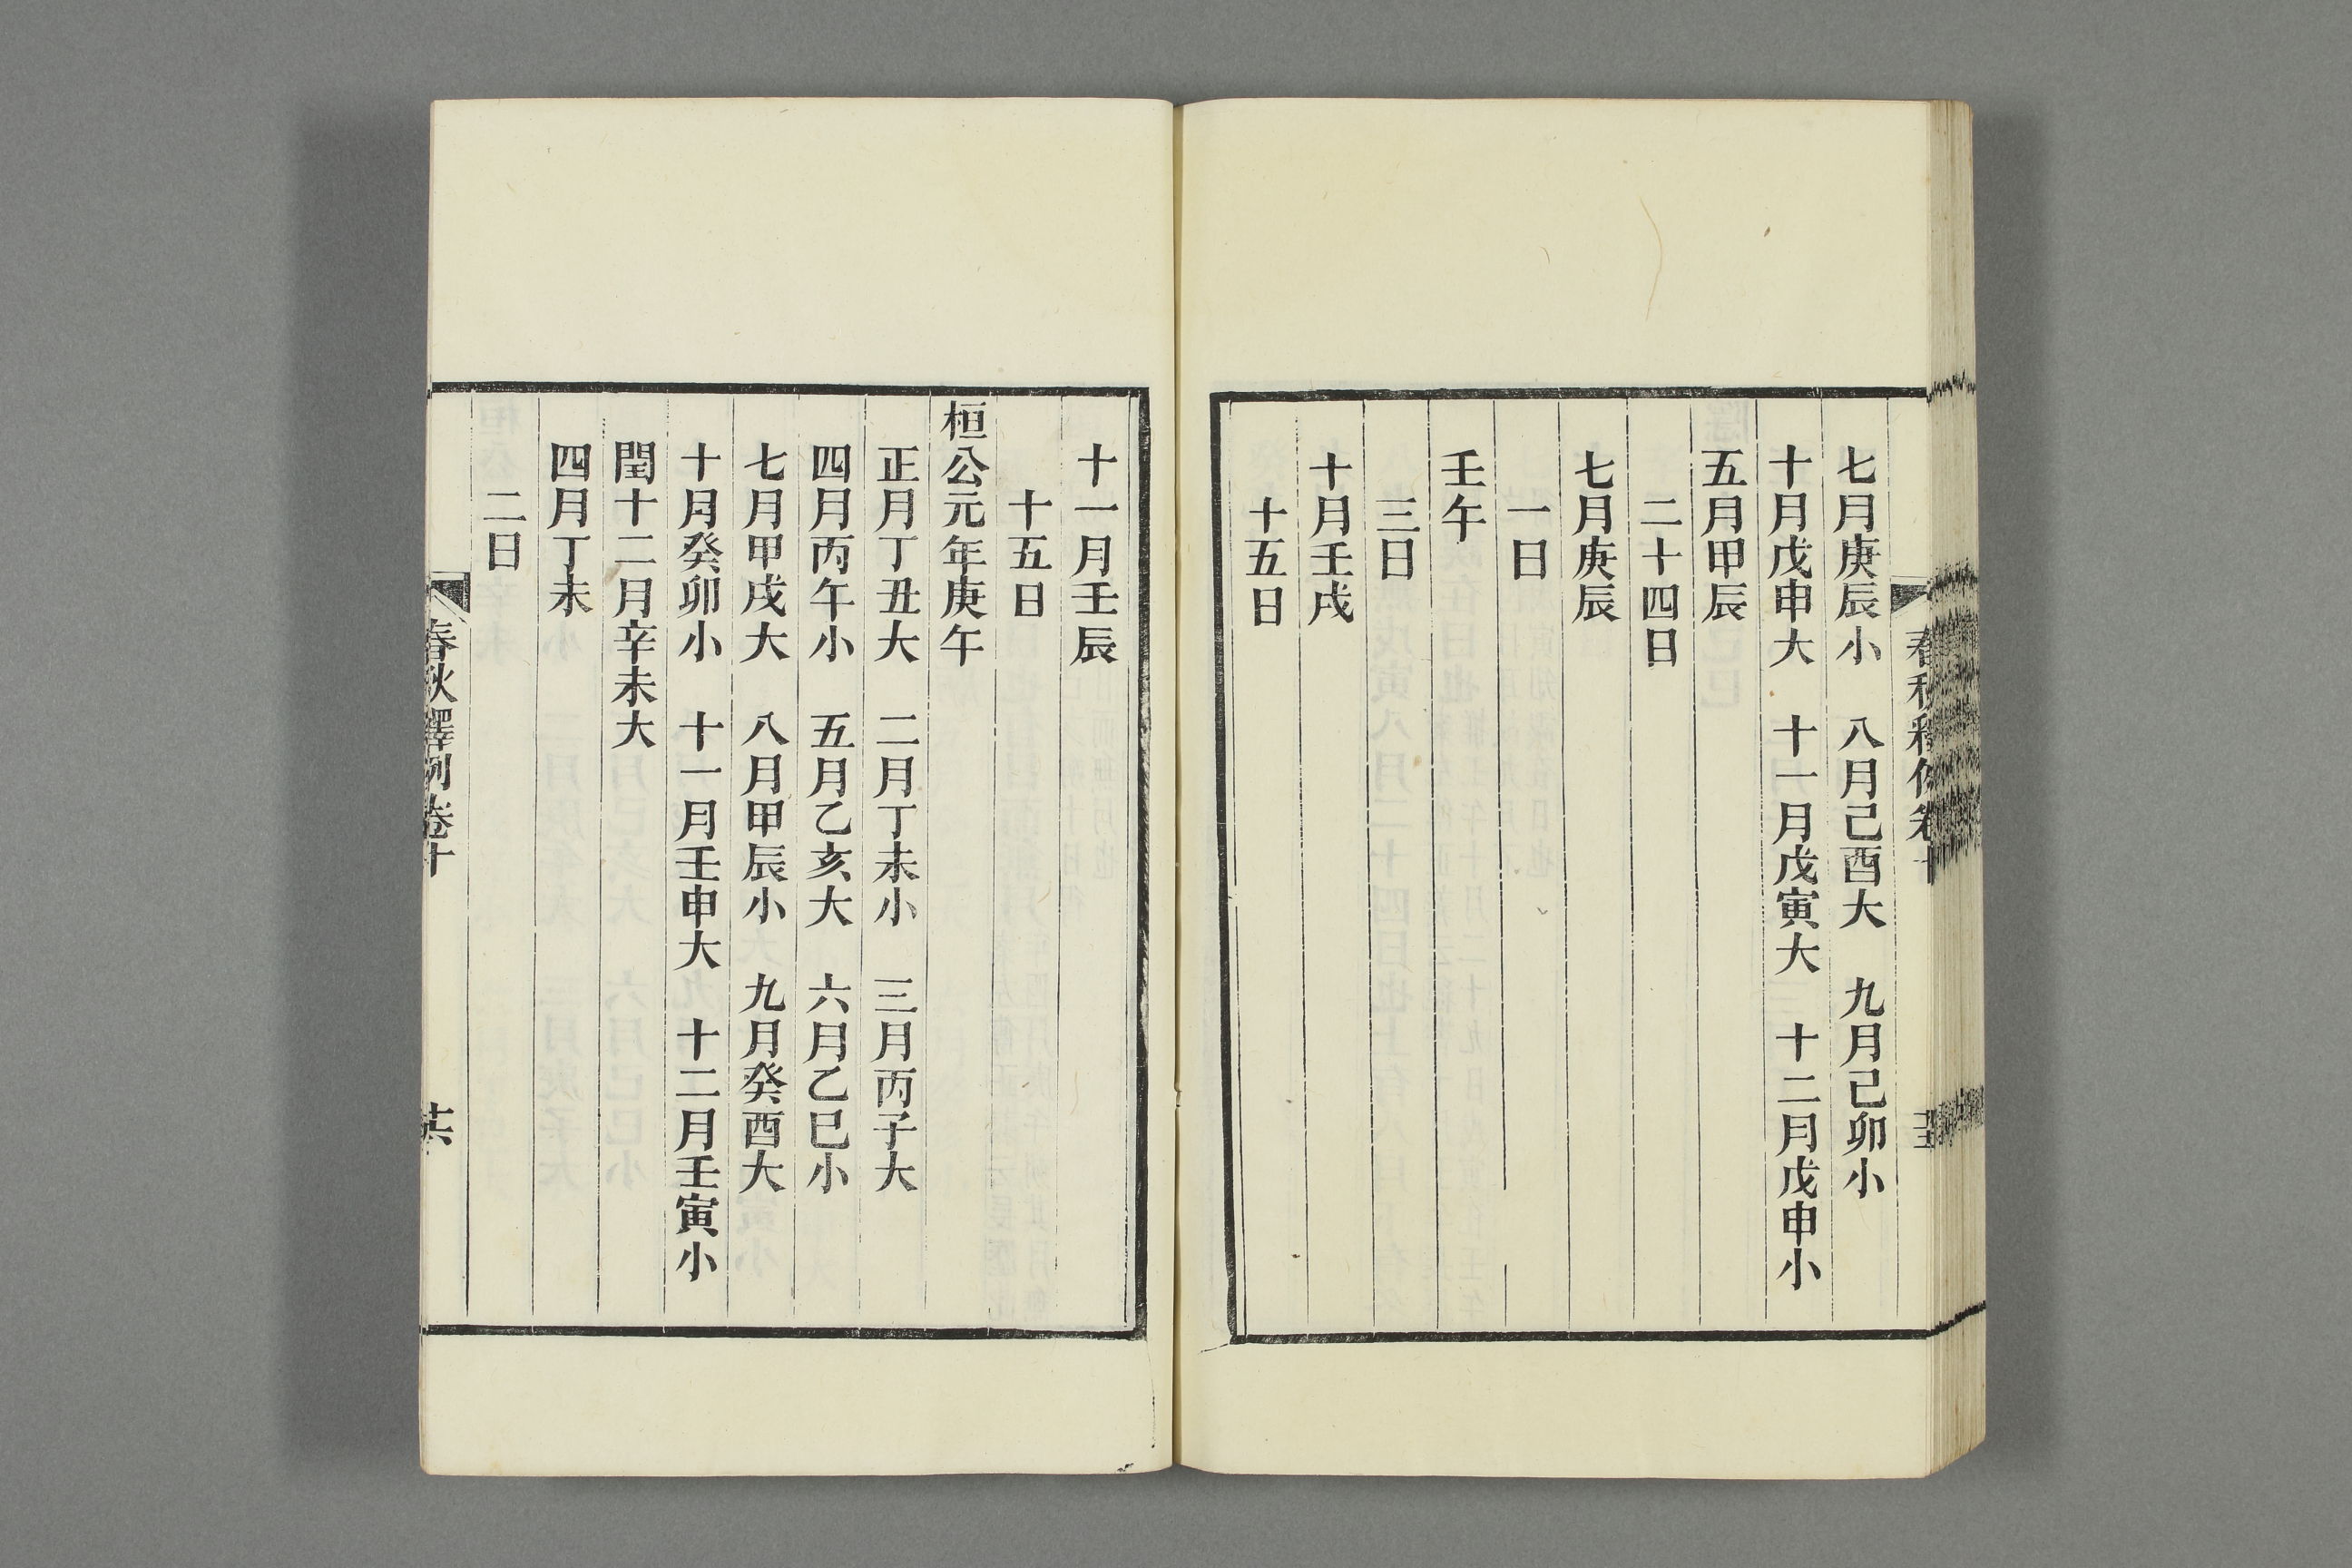 七月庚辰小　八月己酉大　九月己卯小
十月戊申大　十一月戊寅大　十二月戊申小
五月甲辰
二十四日
七月庚辰
一日
壬午
三日
十月壬戌
十五日
十一月壬辰
十五日
桓公元年庚午
正月丁丑大　二月丁未小　三月丙子大
四月丙午小　五月乙亥大　六月乙巳小
七月甲戌大　八月甲辰小　九月癸酉大
十月癸卯小　十一月壬申大　十二月壬寅小
閏十二月辛未大
四月丁未
二日
春秋釋例卷十